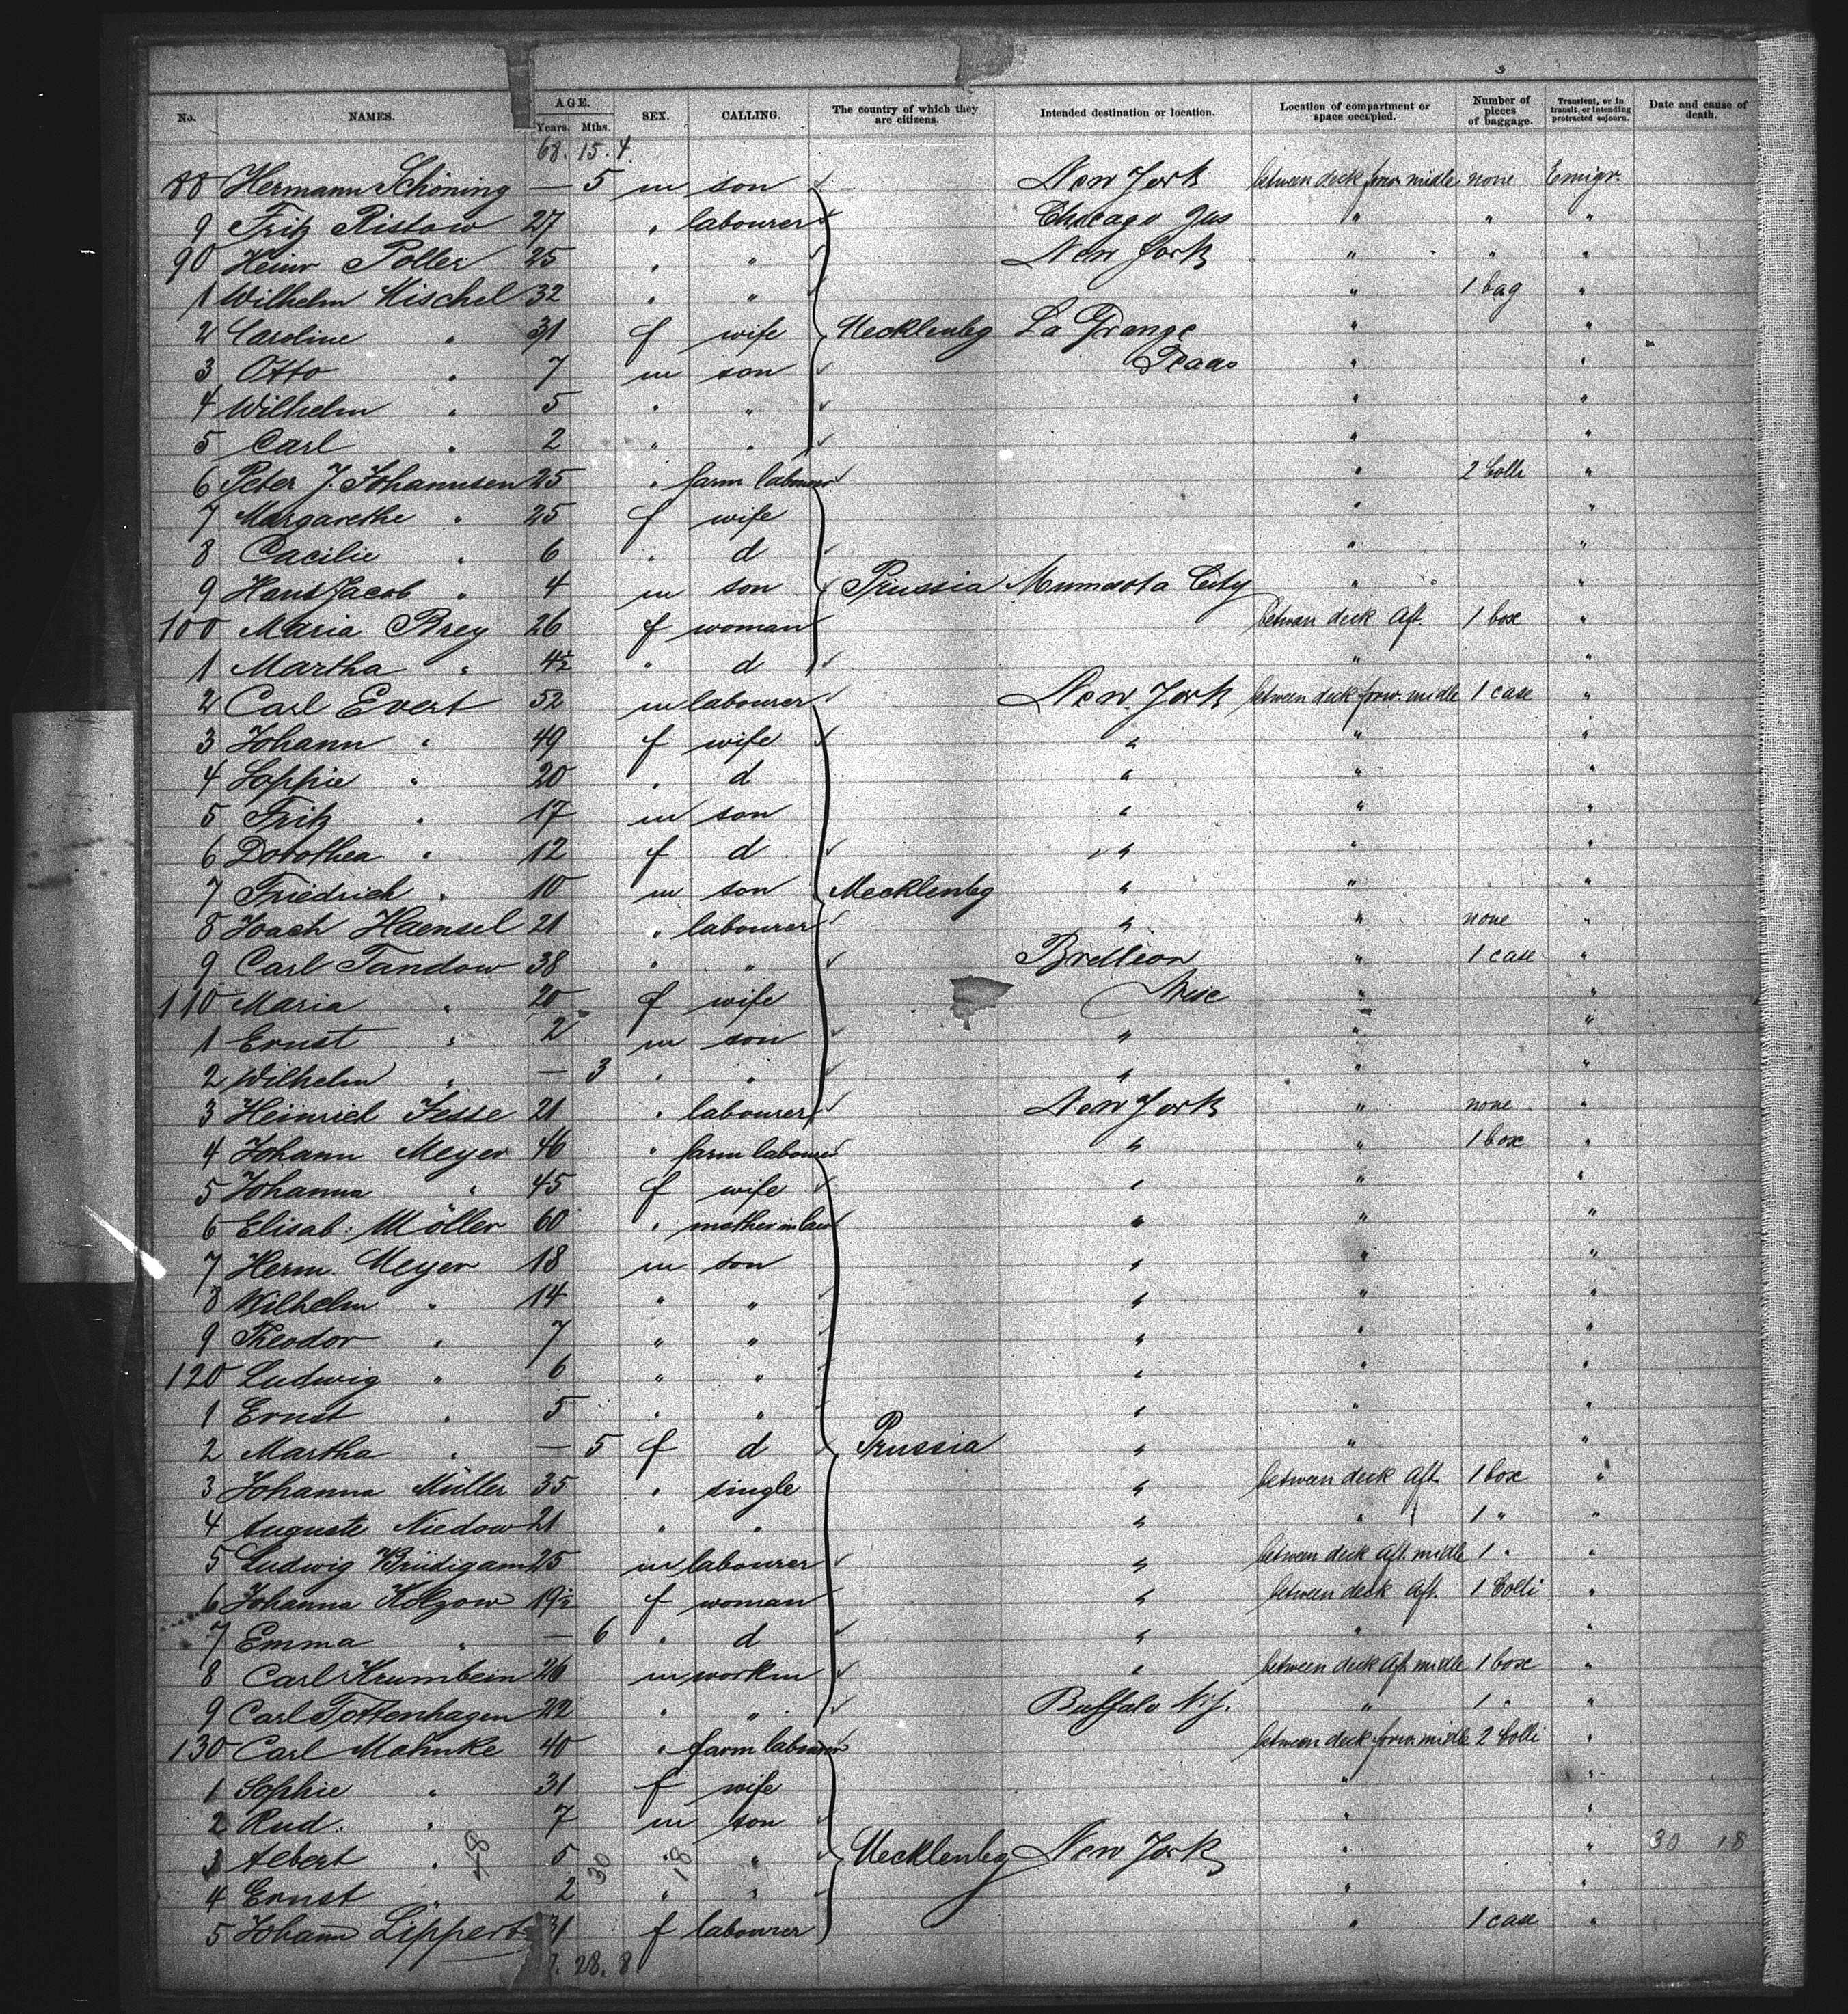 3
No. NAMES. AGE. Years. Mths. SEX. CALLING. The country of which they are citizens. Intended destination or location. Location of compartment or space occupied. Number of pieces of baggage. Transient, or in transit, or intending protracted sojourn. Date and cause of death.
68. 15. 4.
88 Hermann Schöning — 5 m son New York between deck forw. midle none Emigr.
9 Fritz Ristow 27 " labourer Chicago " " "
90 Heinr Poller 25 " " New York " " "
1 Wilhelm Mischel 32 " " " 1 bag "
2 Caroline " 31 f wife Mecklenbg La Grange " "
3 Otto " 7 m son Texas " "
4 Wilhelm " 5 " " " "
5 Carl " 2 " " " "
6 Peter J. Johannsen 25 " farm labourer " 2 Colli "
7 Margarethe " 25 f wife " "
8 Cacilie " 6 " d " "
9 Hans Jacob " 4 m son Prussia Minnesota City " "
100 Maria Brey 26 f woman between deck Aft. 1 box "
1 Martha " 4½ " d " "
2 Carl Evert 52 m labourer New York between deck forw. midle 1 case "
3 Johann " 49 f wife " " "
4 Sophie " 20 " d " " "
5 Fritz " 17 m son " " "
6 Dorothea " 12 f d " " "
7 Friedrich " 10 m son Mecklenbg " " "
8 Joach Haensel 21 " labourer " " none "
9 Carl Tandow 38 " " Brillion " 1 case "
110 Maria " 20 f wife Wisc " "
1 Ernst " 2 m son " " "
2 Wilhelm " — 3 " " " " "
3 Heinrich Jesse 21 " labourer New York " none "
4 Johann Meyer 46 " farm labourer " " 1 box "
5 Johanna " 45 f wife " " "
6 Elisab: Möller 60 " mother in law " " "
7 Herm. Meyer 18 m son " " "
8 Wilhelm " 14 " " " " "
9 Theodor " 7 " " " " "
120 Ludwig " 6 " " " " "
1 Ernst " 5 " " " " "
2 Martha " — 5 f d Prussia " " "
3 Johanna Müller 35 " single " between deck Aft 1 box "
4 Auguste Niedow 21 " " " " 1 " "
5 Ludwig Brüdigam 25 m labourer " between deck Aft. midle 1 " "
6 Johanna Kölzow 19½ f woman " between deck Aft. 1 Colli "
7 Emma " — 6 " d " " "
8 Carl Krumbein 26 m workm " between deck Aft midle 1 box "
9 Carl Tottenhagen 22 " " Buffalo N.Y. " 1 " "
130 Carl Mahnke 40 " farm labourer between deck forw. midle 2 Colli "
1 Sophie " 31 f wife " "
2 Rud. " 7 m son " "
3 Albert " 5 " " Mecklenbg New York " " 30 18
4 Ernst " 2 " " " "
5 Johann Lippert 31 f labourer " 1 case "
48 30 18
7. 28. 8